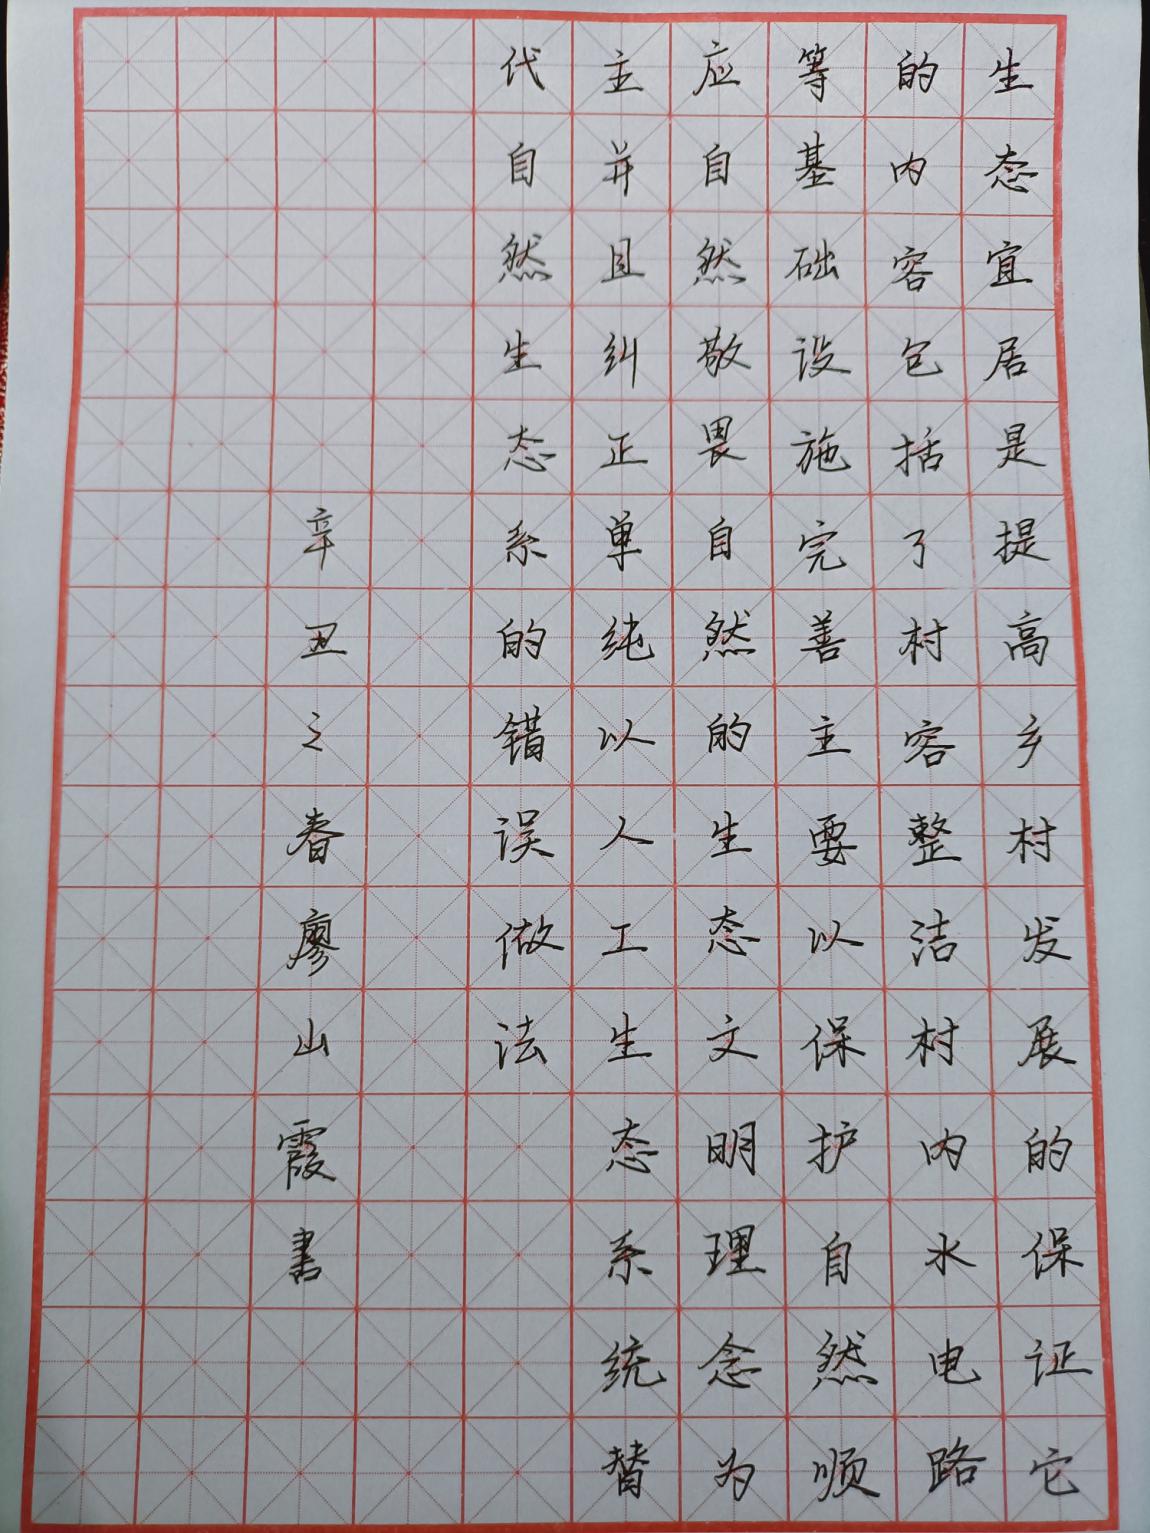 生态宜居是提高乡村发展的保证它
的内容包括了村容整洁村内水电路
等基础设施完善主要以保护自然顺
应自然敬畏自然的生态文明理念为
主并且纠正单纯以人工生态系统替
代自然生态系的错误做法
辛丑之春廖山霞書